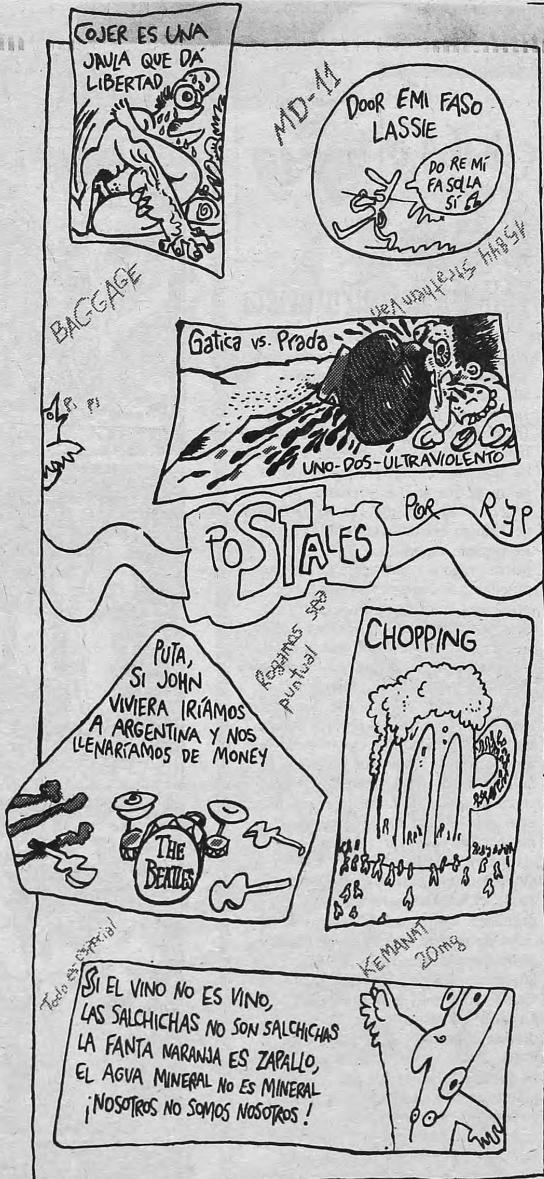 COJER ES UNA
JAULA QUE DÁ
LIBERTAD
MD-11
DOOR EMI FASO
LASSIE
DO RE MÍ
FA SOL LA
SÍ
BAGGAGE
Gatica vs. Prada
UNO-DOS-ULTRAVIOLENTO
Pi Pi
POSTALES
POR REP
Rogamos sea
puntual
PUTA,
SI JOHN
VIVIERA IRÍAMOS
A ARGENTINA Y NOS
LLENARÍAMOS DE MONEY
THE
BEATLES
CHOPPING
Todo es especial
KEMANAT
20mg
SI EL VINO NO ES VINO,
LAS SALCHICHAS NO SON SALCHICHAS
LA FANTA NARANJA ES ZAPALLO,
EL AGUA MINERAL NO ES MINERAL
¡NOSOTROS NO SOMOS NOSOTROS!